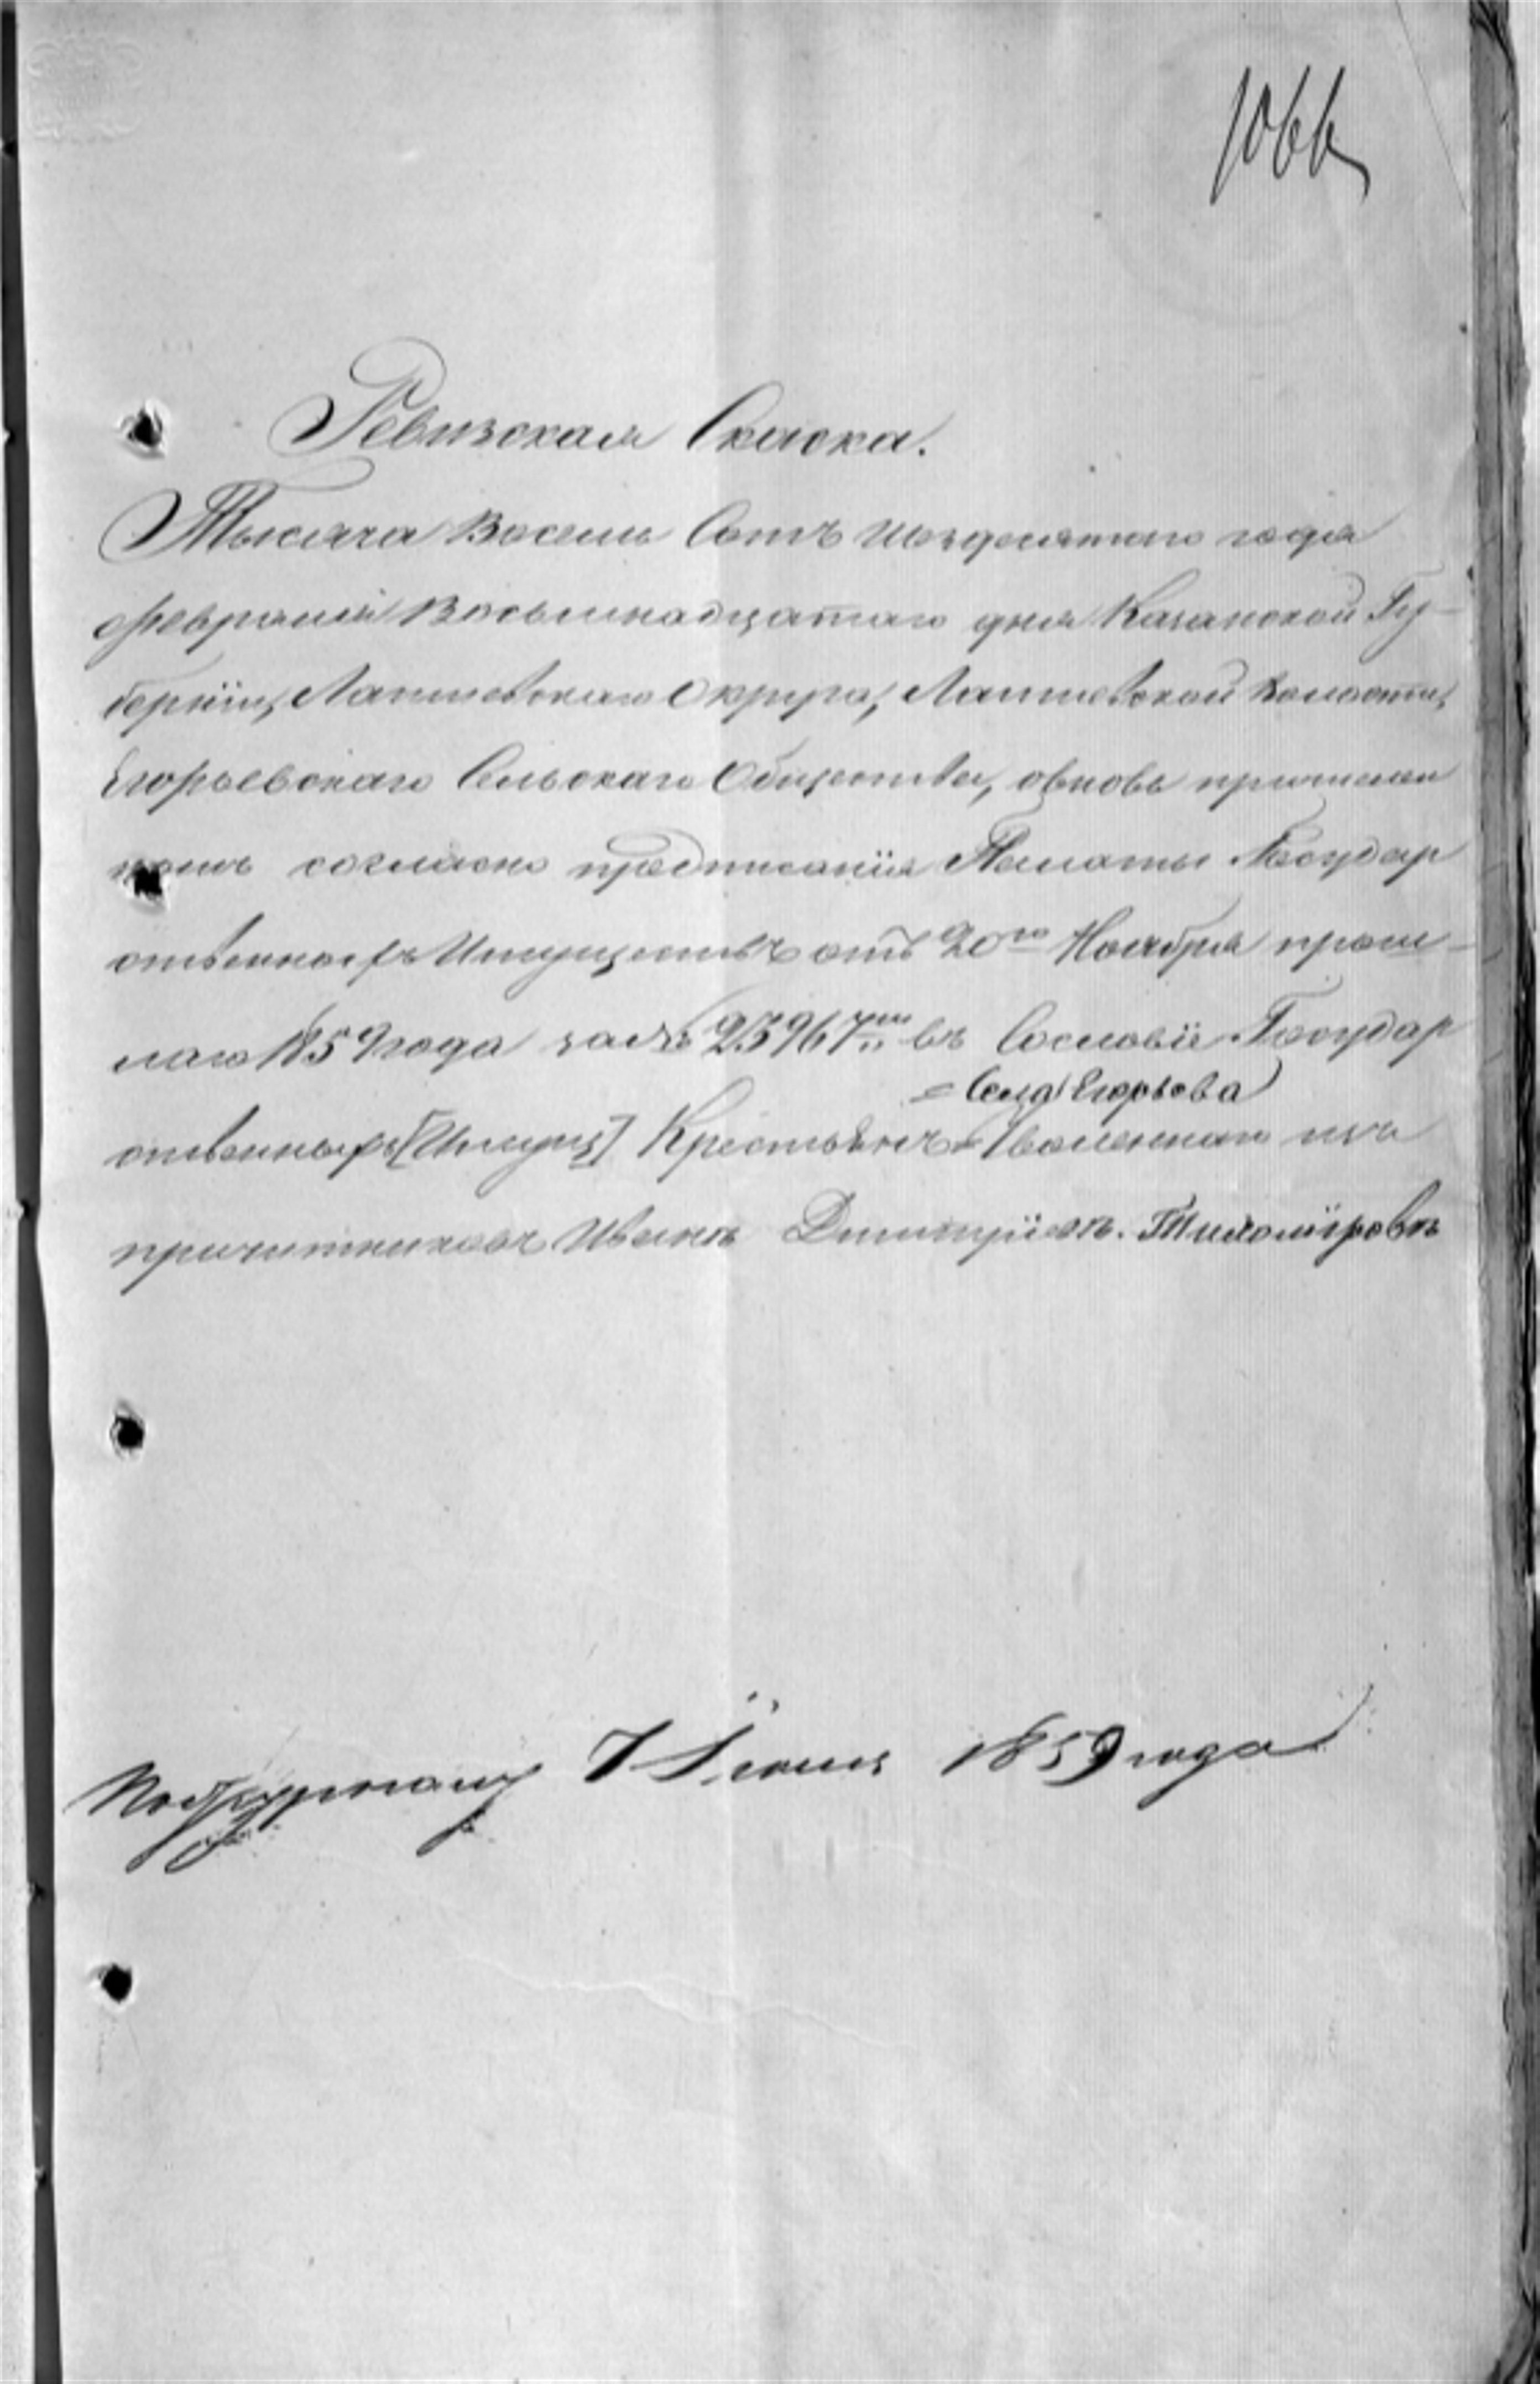 1066
Ревизская Скаска.
Тысяча Восемь Сотъ Шездесятаго года
февраля Восьмнадцатаго дня Казанской Гу-
берніи, Лаишевскаго Округа, Лаишевской Волости,
Егорьевскаго Сельскаго Общества, овновь причислен
номъ согласно предписанія Палаты Государ
ственныхъ Имуществъ отъ 20го Ноября прош-
лаго 1859 года за № 23967мъ въ Сословіе Государ
= Села Егорьева
ственныхъ [Имущ] Крестьянъ = Уволенном изъ
причетниковъ Иванѣ Димитріевѣ Тихоміровѣ
1859 года